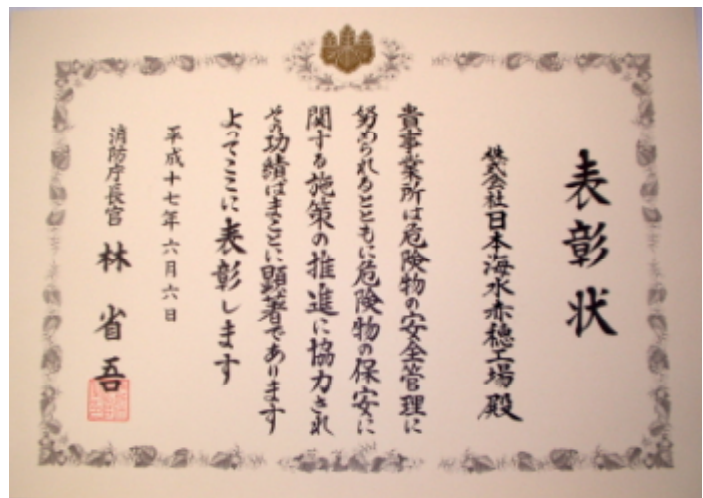 表彰状
株式会社日本海水赤穂工場殿
貴事業所は危険物の安全管理に
努められるとともに危険物の保安に
関する施策の推進に協力され
その功績はまことに顕著であります
よってここに表彰します
平成十七年六月六日
消防庁長官 林省吾